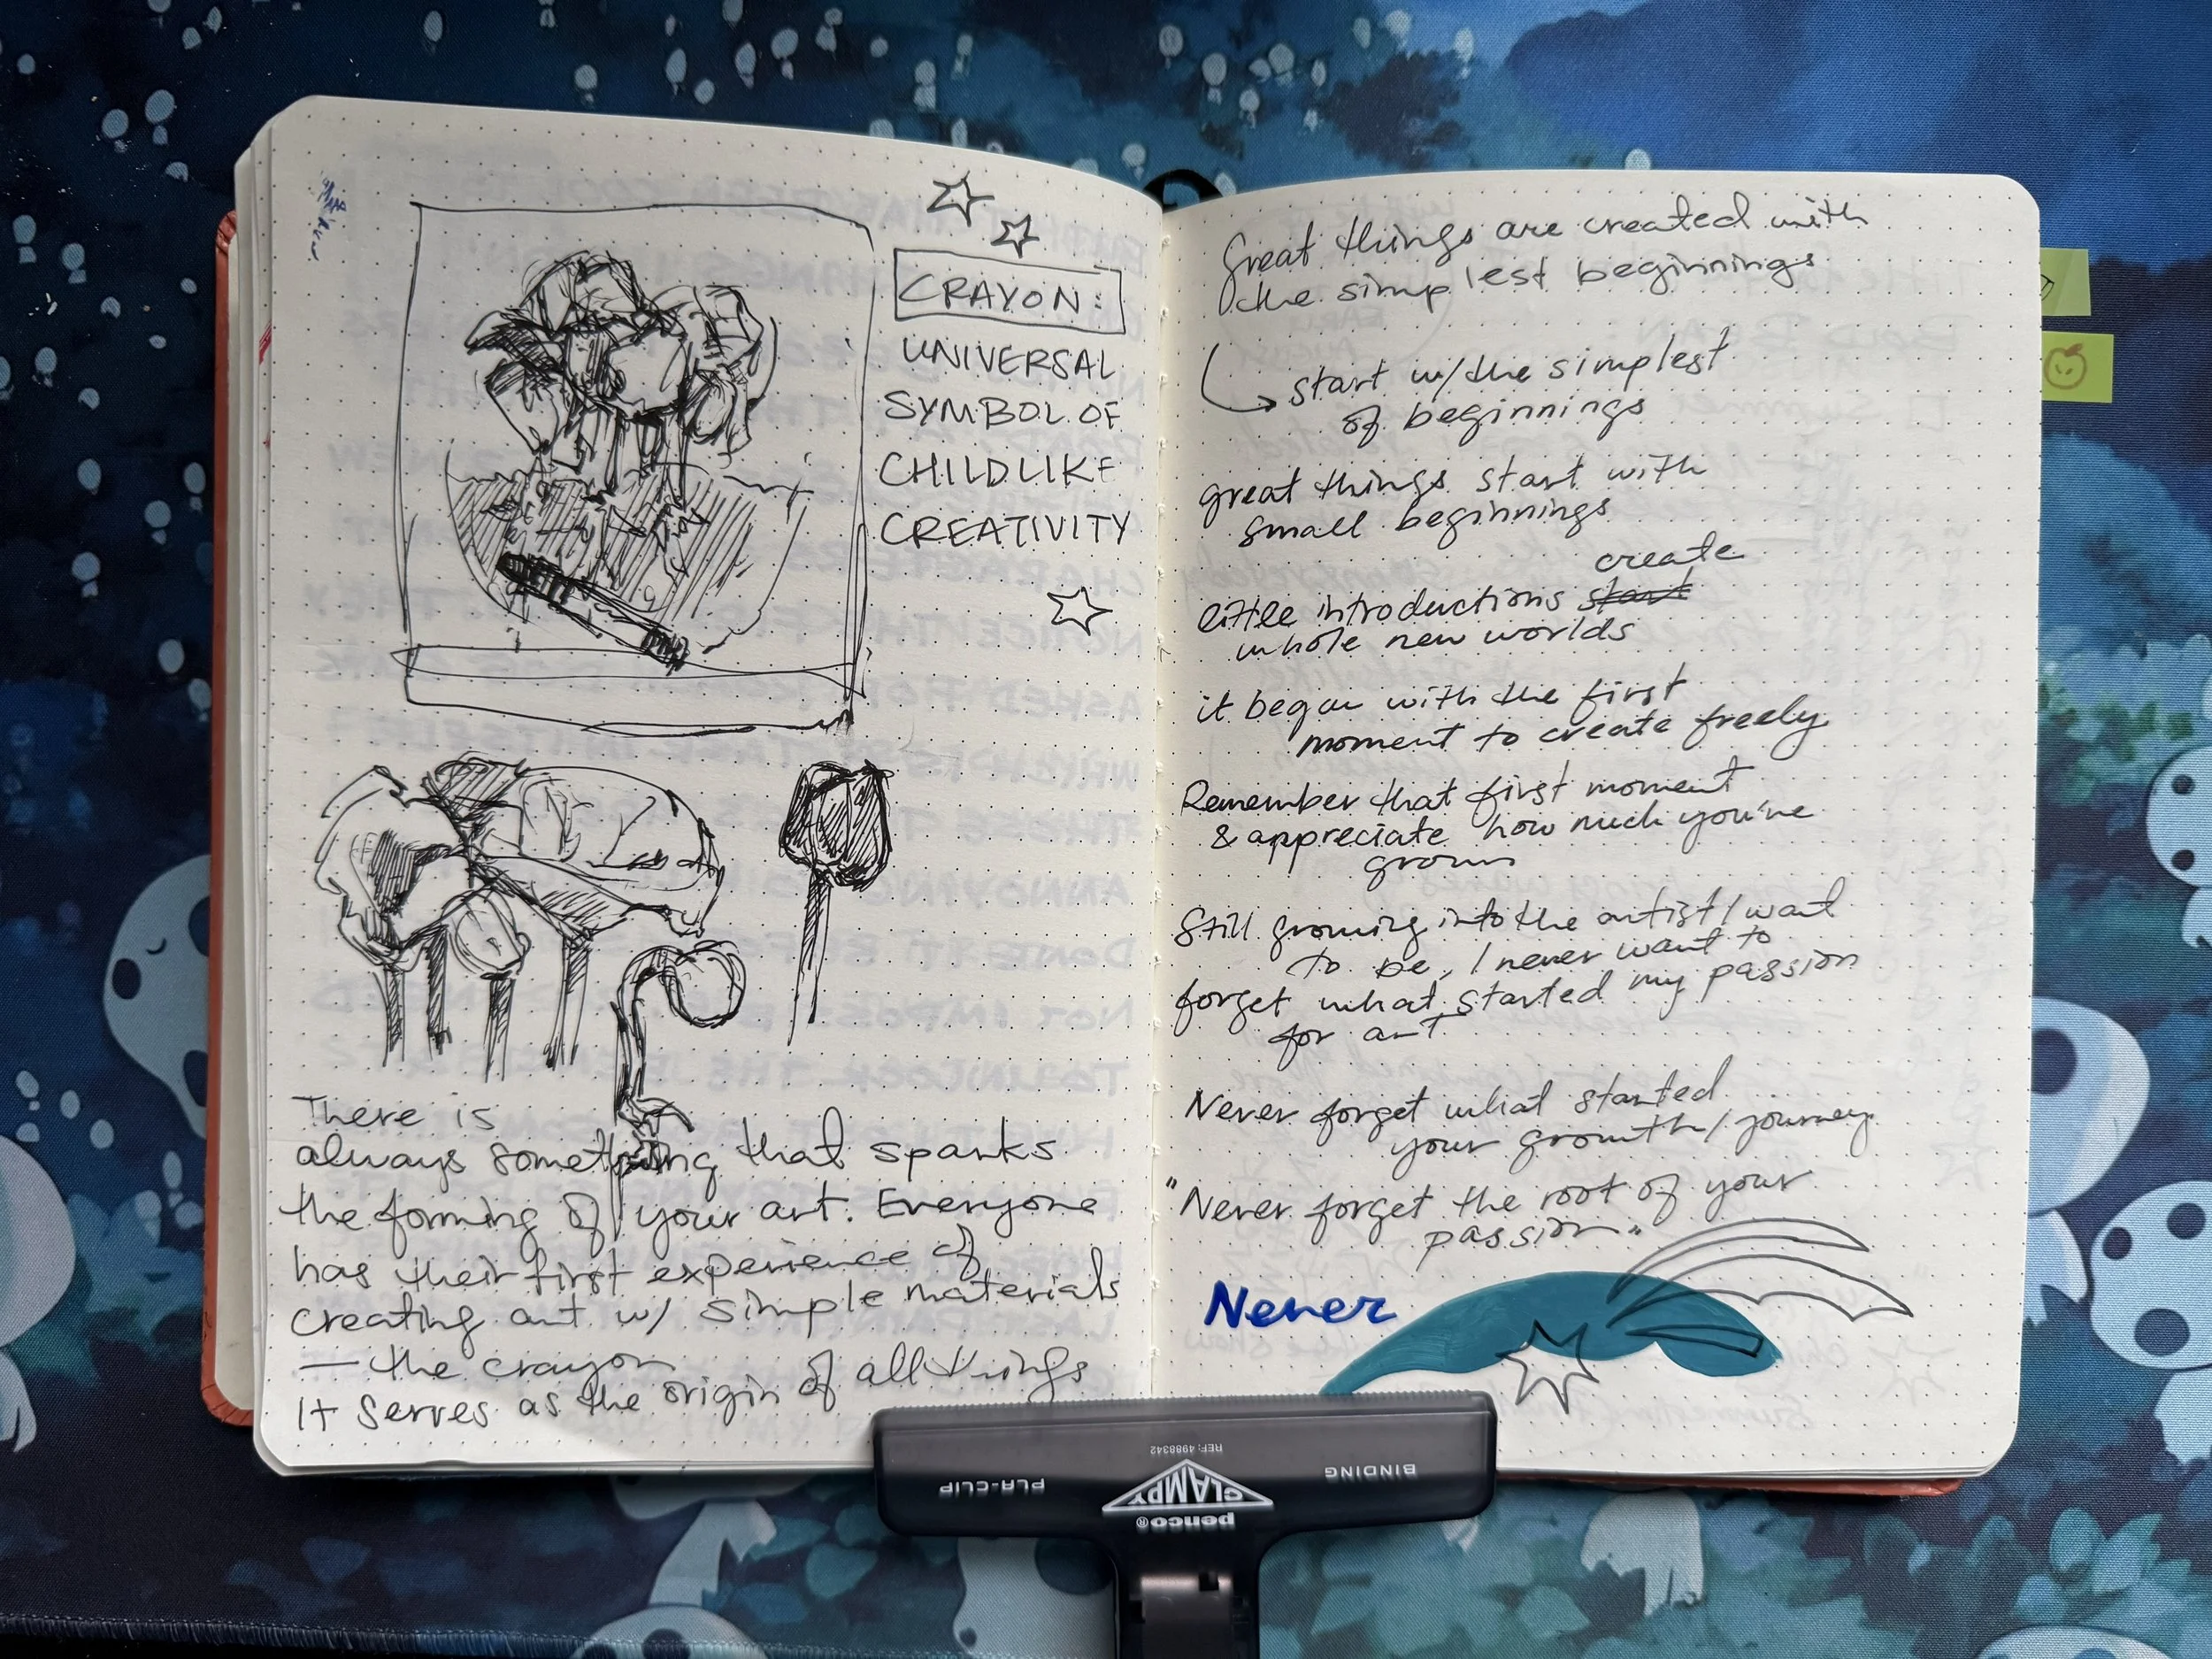 CRAYON:
UNIVERSAL
SYMBOL OF
CHILDLIKE
CREATIVITY
There is
always something that sparks
the forming of your art. Everyone
has their first experience of
creating art w/ simple materials
— the crayon
It serves as the origin of all things
Great things are created with
the simplest beginnings
start w/ the simplest
of beginnings
great things start with
small beginnings
create
little introductions start
whole new worlds
it began with the first
moment to create freely
Remember that first moment
& appreciate how much you've
grown
Still growing into the artist I want
to be, I never want to
forget what started my passion
for art
Never forget what started
your growth/journey
"Never forget the root of your
passion"
Never
REF: 4988342
PLA-CLIP
BINDING
CLAMPY
penco®